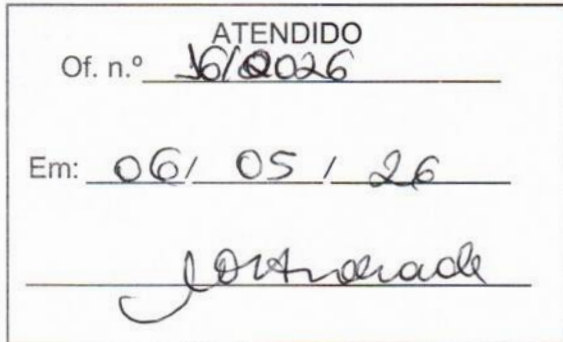 ATENDIDO
Of. n.º 16/2026
Em: 06/ 05 / 26